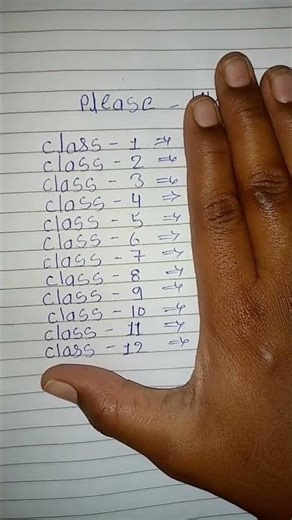 Please -
class - 1 ⇒
class - 2 ⇒
class - 3 ⇒
class - 4 ⇒
class - 5 ⇒
class - 6 ⇒
class - 7 ⇒
class - 8 ⇒
class - 9 ⇒
class - 10 ⇒
class - 11 ⇒
class - 12 ⇒